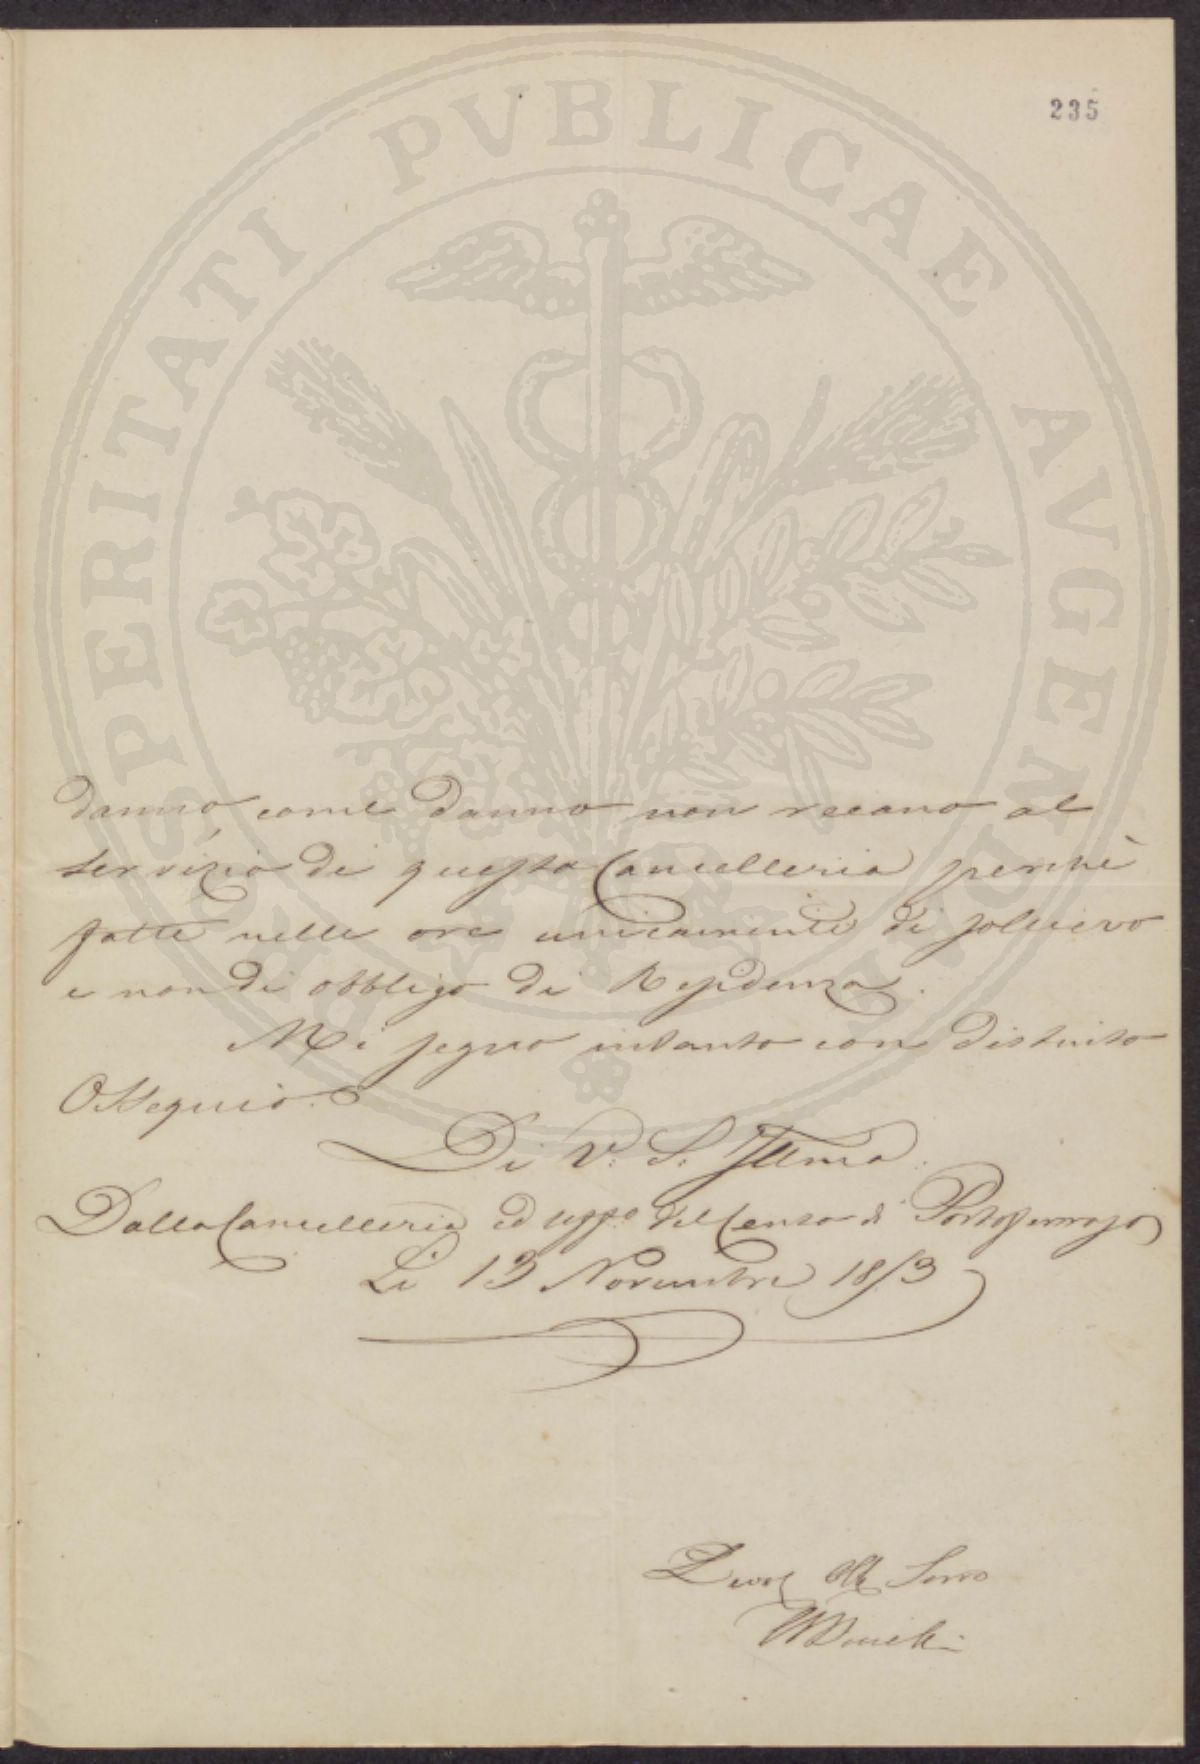 235
danno, come danno non recano al
servizio di questa Cancelleria perchè
fatte nelle ore unicamente di sollievo
e non di obbligo di Residenza.
Mi segno intanto con distinto
Ossequio.
Di V. S. Illma.
Dalla Cancelleria ed uffo del Censo di Portoferrajo
Li 13 Novembre 1853
Devot Obb Servo
PROSPERITATI PVBLICAE AVGENDAE